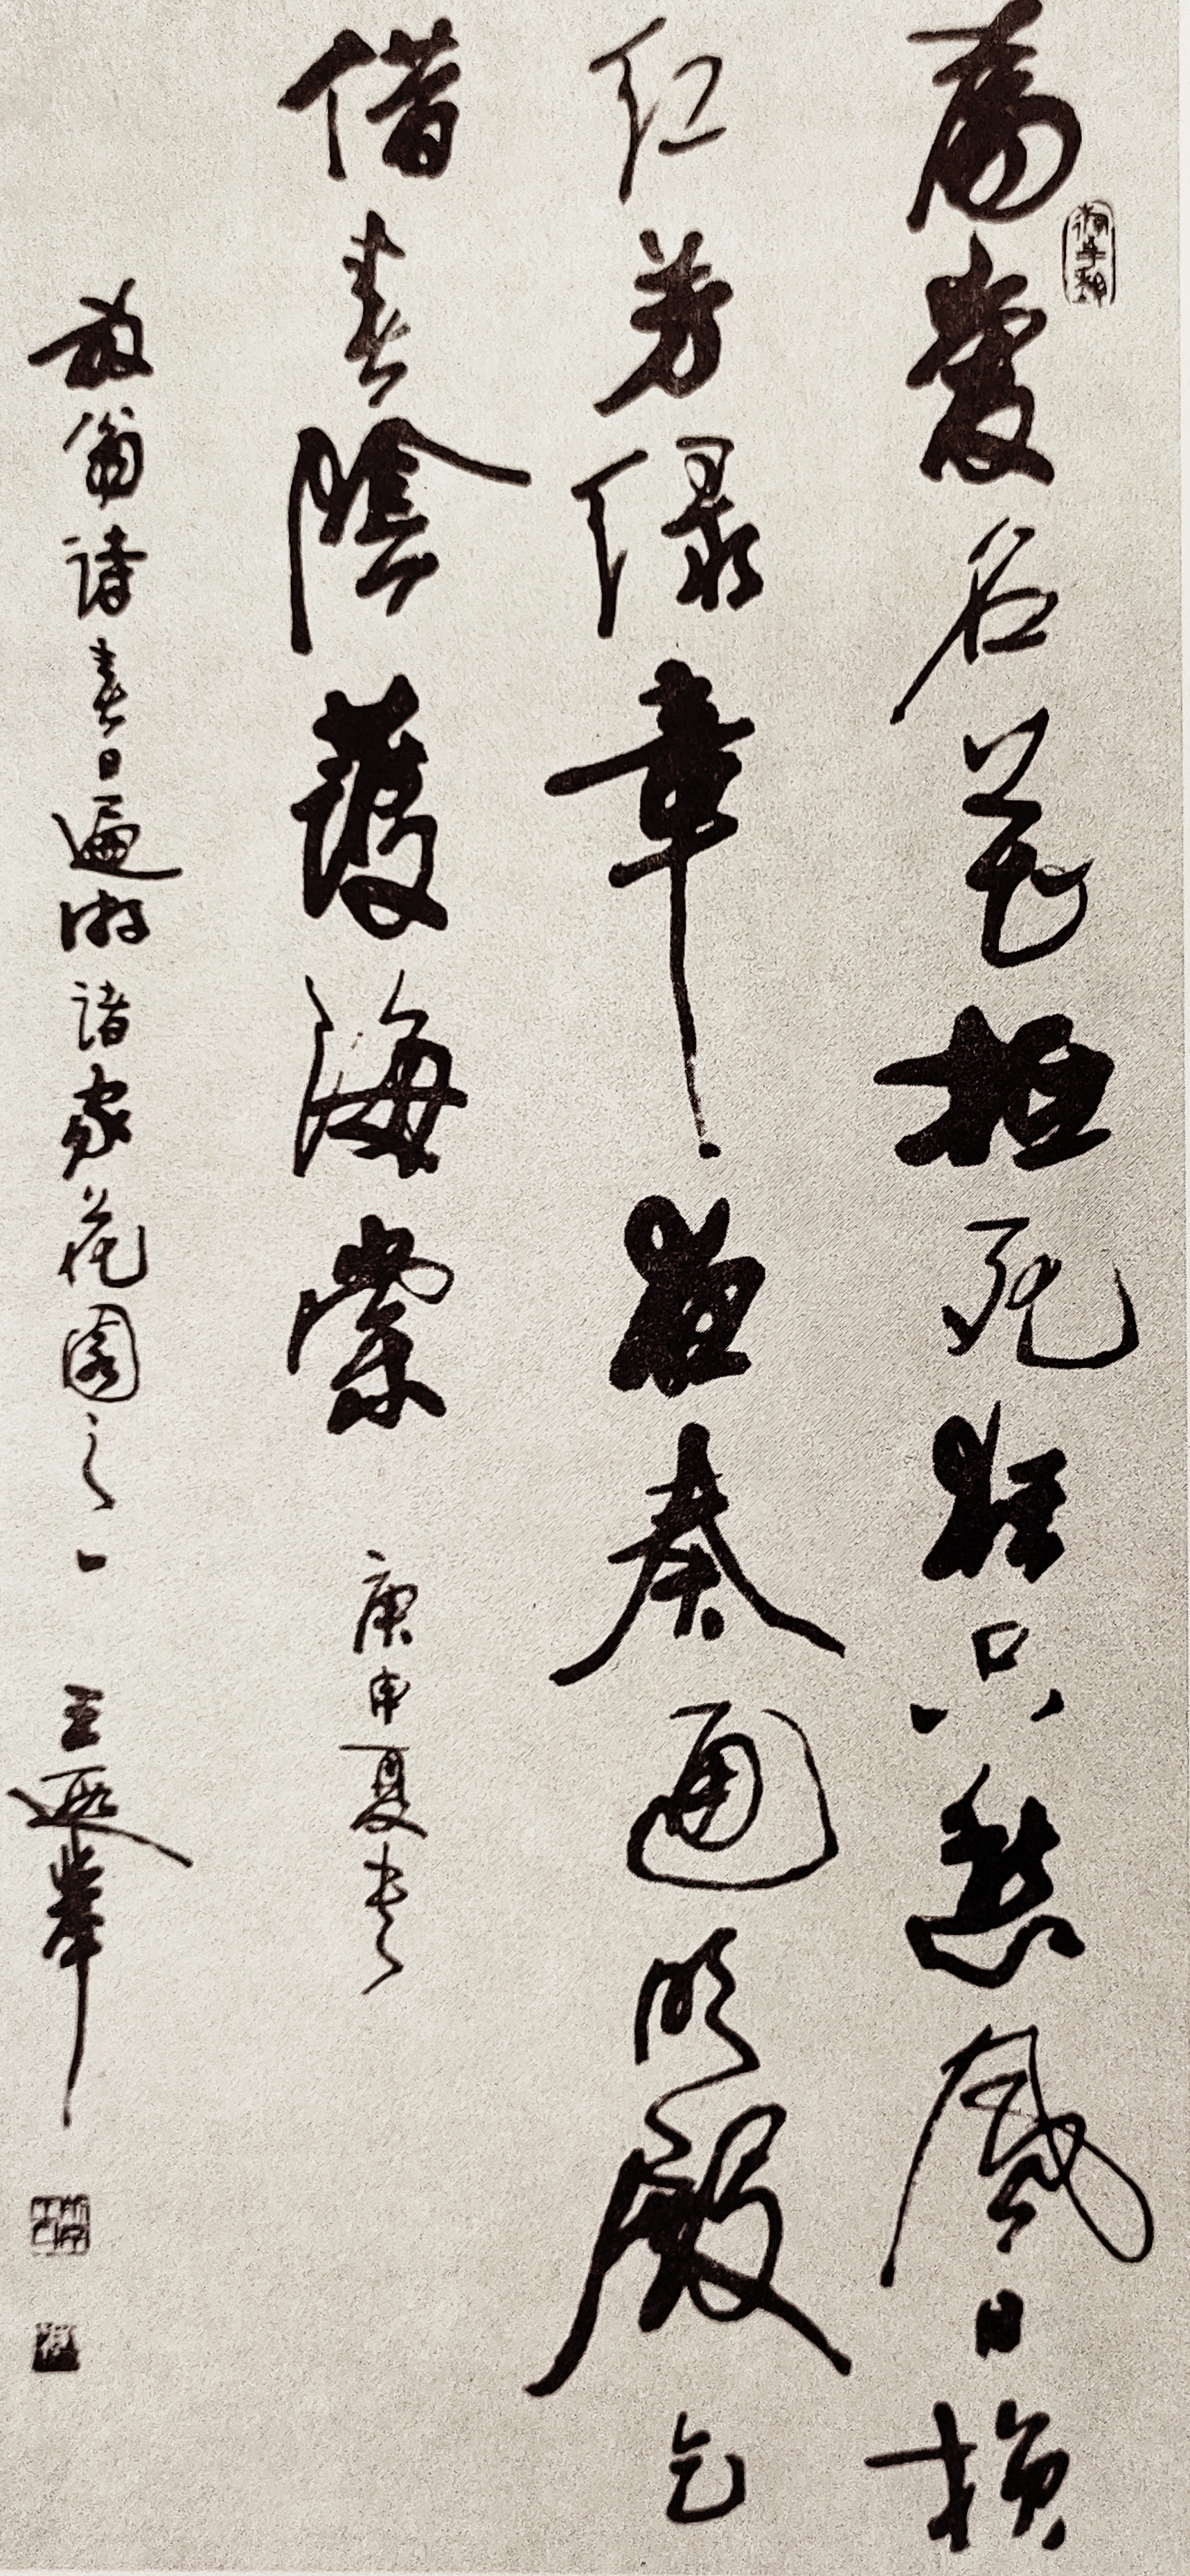 为爱名花抵死狂只愁风日损
红芳绿章夜奏通明殿乞
借春陰護海棠
庚申夏书
放翁詩春日遍游諸家花園之一
王遐舉